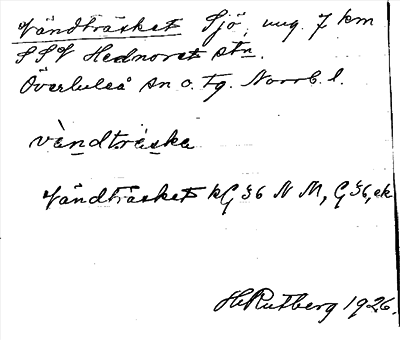 Vändträsket Sjö, ung. 7 km
SSV Hednoret stn.
Överluleå sn o. tg. Norrb. l.
vàndtráska
Vändträsket kG 36 N M, G 36, ek
H Rutberg 1926.